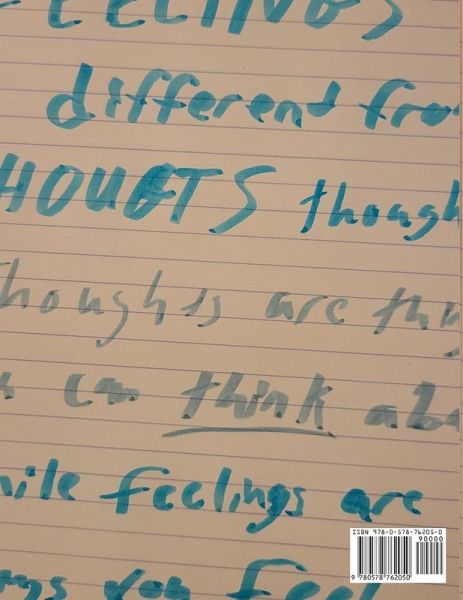 EELINGS
different fro
HOUGTS though
thoughts are thin
can think abo
hile feelings are
ngs you feel
ISBN 978-0-578-76205-0
90000
9 780578 762050